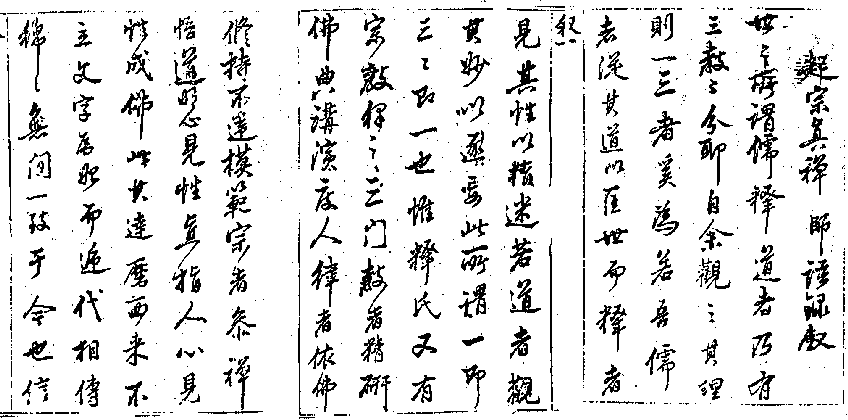 起宗真禪師語録叙
世之所謂儒釋道者乃有
三教之分耶自余觀之其理
則一三者奚為若吾儒
者從其道以匡世而釋者
叙
見其性以積迷若道者觀
其妙以適要此所謂一即
三〻即一也惟釋氏又有
宗教律之三門教者精研
佛典講演度人律者依佛
修持不違模範宗者參禪
悟道明心見性直指人心見
性成佛此其達磨西來不
立文字為然而遞代相傳
綿〻無間一致于今也信